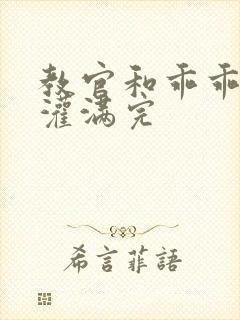 教官和乖乖
灌满完
希言菲語